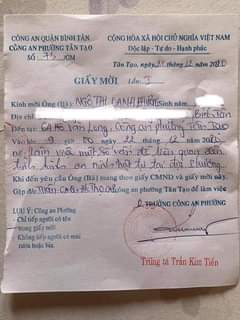 CÔNG AN QUẬN BÌNH TÂN
CÔNG AN PHƯỜNG TÂN TẠO
SỐ : 75 /GM
CỘNG HÒA XÃ HỘI CHỦ NGHĨA VIỆT NAM
Độc lập - Tự do - Hạnh phúc
Tân Tạo, ngày 21 tháng 12 năm 20
GIẤY MỜI Lần I
Kính mời Ông (Bà) NGÔ THỊ OANH PHƯƠNG Sinh năm
Địa chỉ Bình Tân
Đến tại: Văn Long, Công an phường Tân Tạo
Vào lúc 9 giờ 00 ngày 22 tháng 12 năm 20
Để làm một số vấn đề liên quan đến
tình hình an ninh trật tự tại địa phương
Khi đến yêu cầu Ông (Bà) mang theo giấy CMND và giấy mời này.
Gặp đ/c công an phường Tân Tạo để làm việc
LƯU Ý: Công an Phường
- Chỉ tiếp người có tên
trong giấy mời
- Không tiếp người có mùi
rượu hoặc bia.
TRƯỞNG CÔNG AN PHƯỜNG
Trung tá Trần Kim Tiền